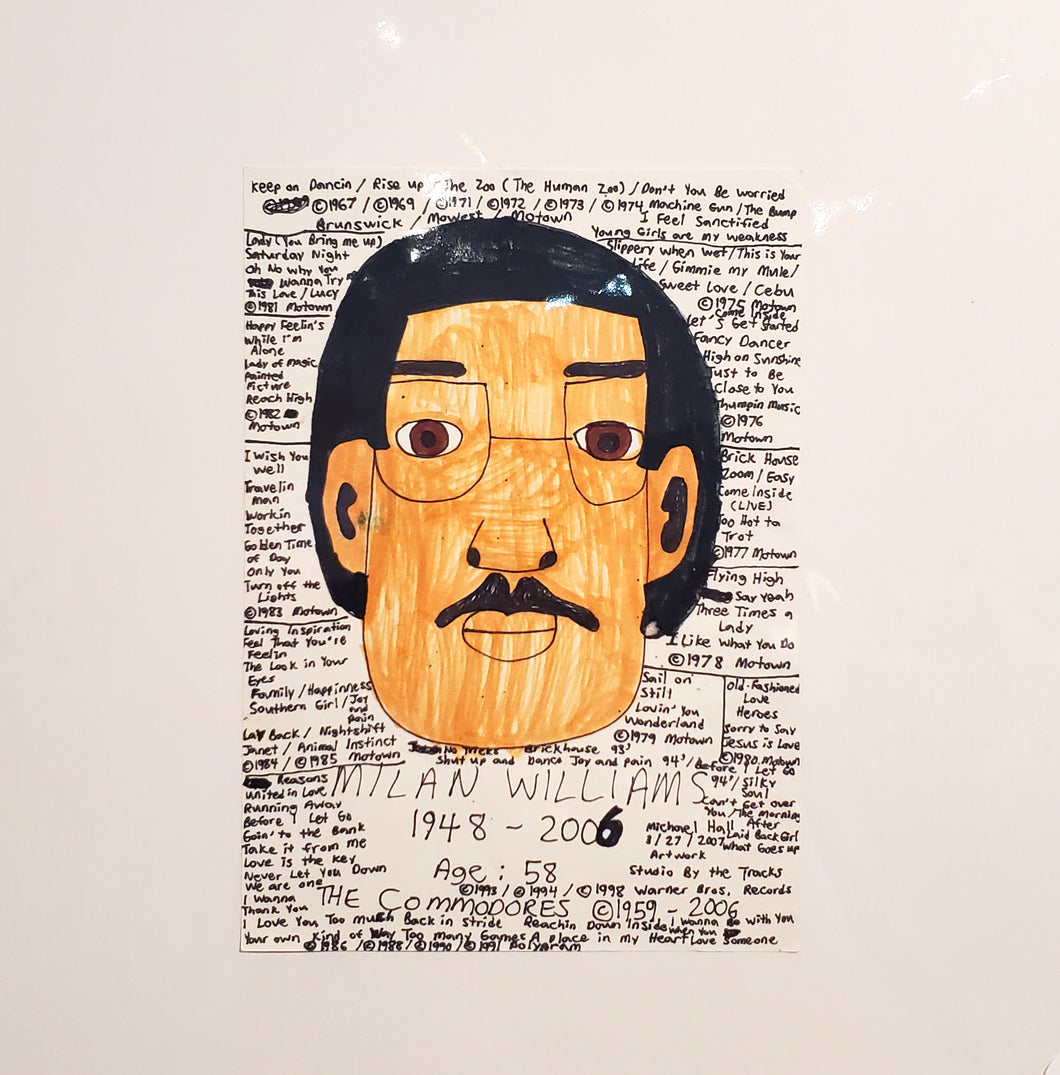 Keep on Dancin / Rise up / The Zoo (The Human Zoo) / Don't You Be worried
©1967 / ©1969 / ©1971 / ©1972 / ©1973 / ©1974 Machine Gun / The Bump
Brunswick / Mowest / Motown I Feel Sanctified
Young Girls are my weakness
Lady (You Bring me up)
Saturday Night
Oh No Why You
Wanna Try
This Love / Lucy
©1981 Motown
Happy Feelin's
While I'm
Alone
Lady of magic
Painted
Picture
Reach High
©1982
Motown
I wish You
well
Travelin
man
Workin
Together
Golden Time
of Day
Only You
Turn off the
Lights
©1983 Motown
Loving Inspiration
Feel That You're
Feelin
The Look in Your
Eyes
Family / Happinness
Southern Girl / Joy
and
Pain
Lay Back / Nightshift
Janet / Animal Instinct
©1984 / ©1985 Motown
Slippery when wet / This is Your
Life / Gimmie my Mule /
Sweet Love / Cebu
©1975 Motown
Come Inside
Let's Get Started
Fancy Dancer
High on Sunshine
Just to Be
Close to You
Thumpin Music
©1976
Motown
Brick House
Zoom / Easy
Come Inside
(LIVE)
Too Hot ta
Trot
©1977 Motown
Flying High
Say Yeah
Three Times a
Lady
I Like what You Do
©1978 Motown
Sail on
Still
Lovin' You
Wonderland
©1979 Motown
Old-Fashioned
Love
Heroes
Sorry to Say
Jesus is Love
©1980 Motown
No Tricks Brickhouse 93'
Shut up and Dance Joy and pain 94' / Before I Let Go
94' / Silky
Soul
Can't Get over
You / The Morning
After
Laid Back Girl
What Goes up
Reasons
United in Love
Running Away
Before I Let Go
Goin' to the Bank
Take it from me
Love is the key
Never Let You Down
We are one
I Wanna
Thank You
MILAN WILLIAMS
1948 - 2006
Michael Hall
8/27/2007
Artwork
Age: 58
Studio By the Tracks
©1993 / ©1994 / ©1998 Warner Bros. Records
THE COMMODORES ©1959 - 2006
I Love You Too much Back in Stride Reachin Down Inside I wanna Be with You
when You
Your own kind of Way Too many Games A place in my Heart Love Someone
©1986 / ©1988 / ©1990 / ©1991 Polygram